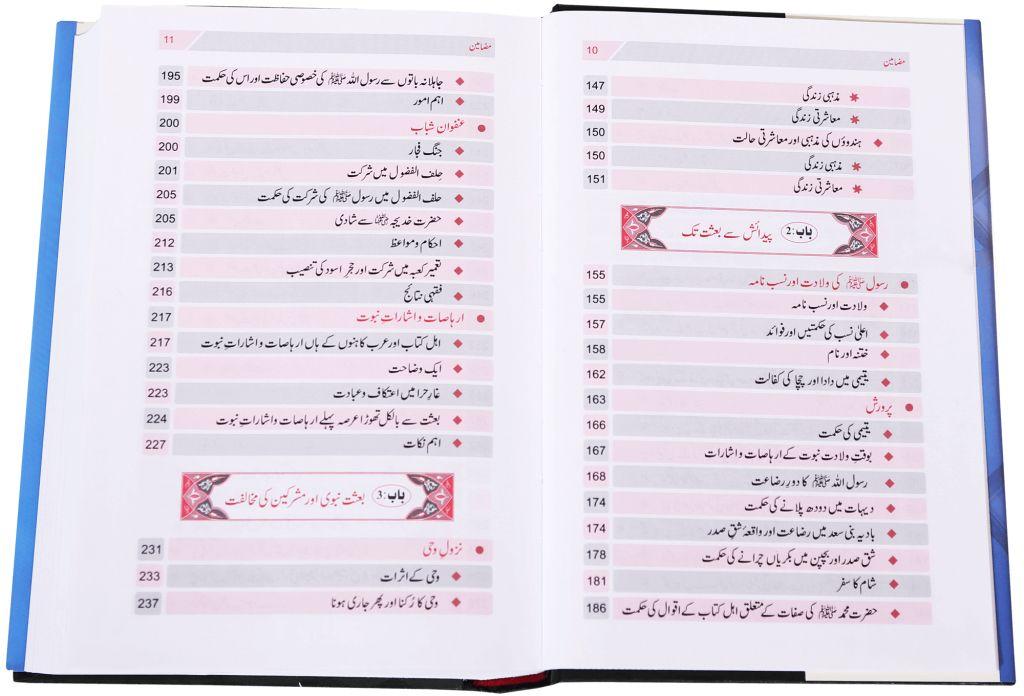 مضامین 10
مذہبی زندگی 147
معاشرتی زندگی 149
ہندوؤں کی مذہبی اور معاشرتی حالت 150
مذہبی زندگی 150
معاشرتی زندگی 151
باب:2 پیدائش سے بعثت تک
رسول ﷺ کی ولادت اور نسب نامہ 155
ولادت اور نسب نامہ 155
اعلیٰ نسب کی حکمتیں اور فوائد 157
ختنہ اور نام 158
یتیمی میں دادا اور چچا کی کفالت 162
پرورش 163
یتیمی کی حکمت 166
بوقتِ ولادت نبوت کے ارہاصات و اشارات 167
رسول اللہ ﷺ کا دورِ رضاعت 168
دیہات میں دودھ پلانے کی حکمت 174
بادیہ بنی سعد میں رضاعت اور واقعۂ شقِ صدر 174
شق صدر اور بچپن میں بکریاں چرانے کی حکمت 178
شام کا سفر 181
حضرت محمد ﷺ کی صفات کے متعلق اہل کتاب کے اقوال کی حکمت 186
مضامین 11
جاہلانہ باتوں سے رسول اللہ ﷺ کی خصوصی حفاظت اور اس کی حکمت 195
اہم امور 199
عنفوان شباب 200
جنگ فجار 200
حِلف الفضول میں شرکت 201
حلف الفضول میں رسول ﷺ کی شرکت کی حکمت 205
حضرت خدیجہ رضی اللہ عنہا سے شادی 205
احکام و مواعظ 212
تعمیر کعبہ میں شرکت اور حجرِ اسود کی تنصیب 213
فقہی نتائج 216
ارہاصات و اشاراتِ نبوت 217
اہل کتاب اور عرب کاہنوں کے ہاں ارہاصات و اشاراتِ نبوت 217
ایک وضاحت 223
غارِ حرا میں اعتکاف و عبادت 223
بعثت سے بالکل تھوڑا عرصہ پہلے ارہاصات و اشاراتِ نبوت 224
اہم نکات 227
باب:3 بعثت نبوی اور مشرکین کی مخالفت
نزول وحی 231
وحی کے اثرات 233
وحی کا رُکنا اور پھر جاری ہونا 237